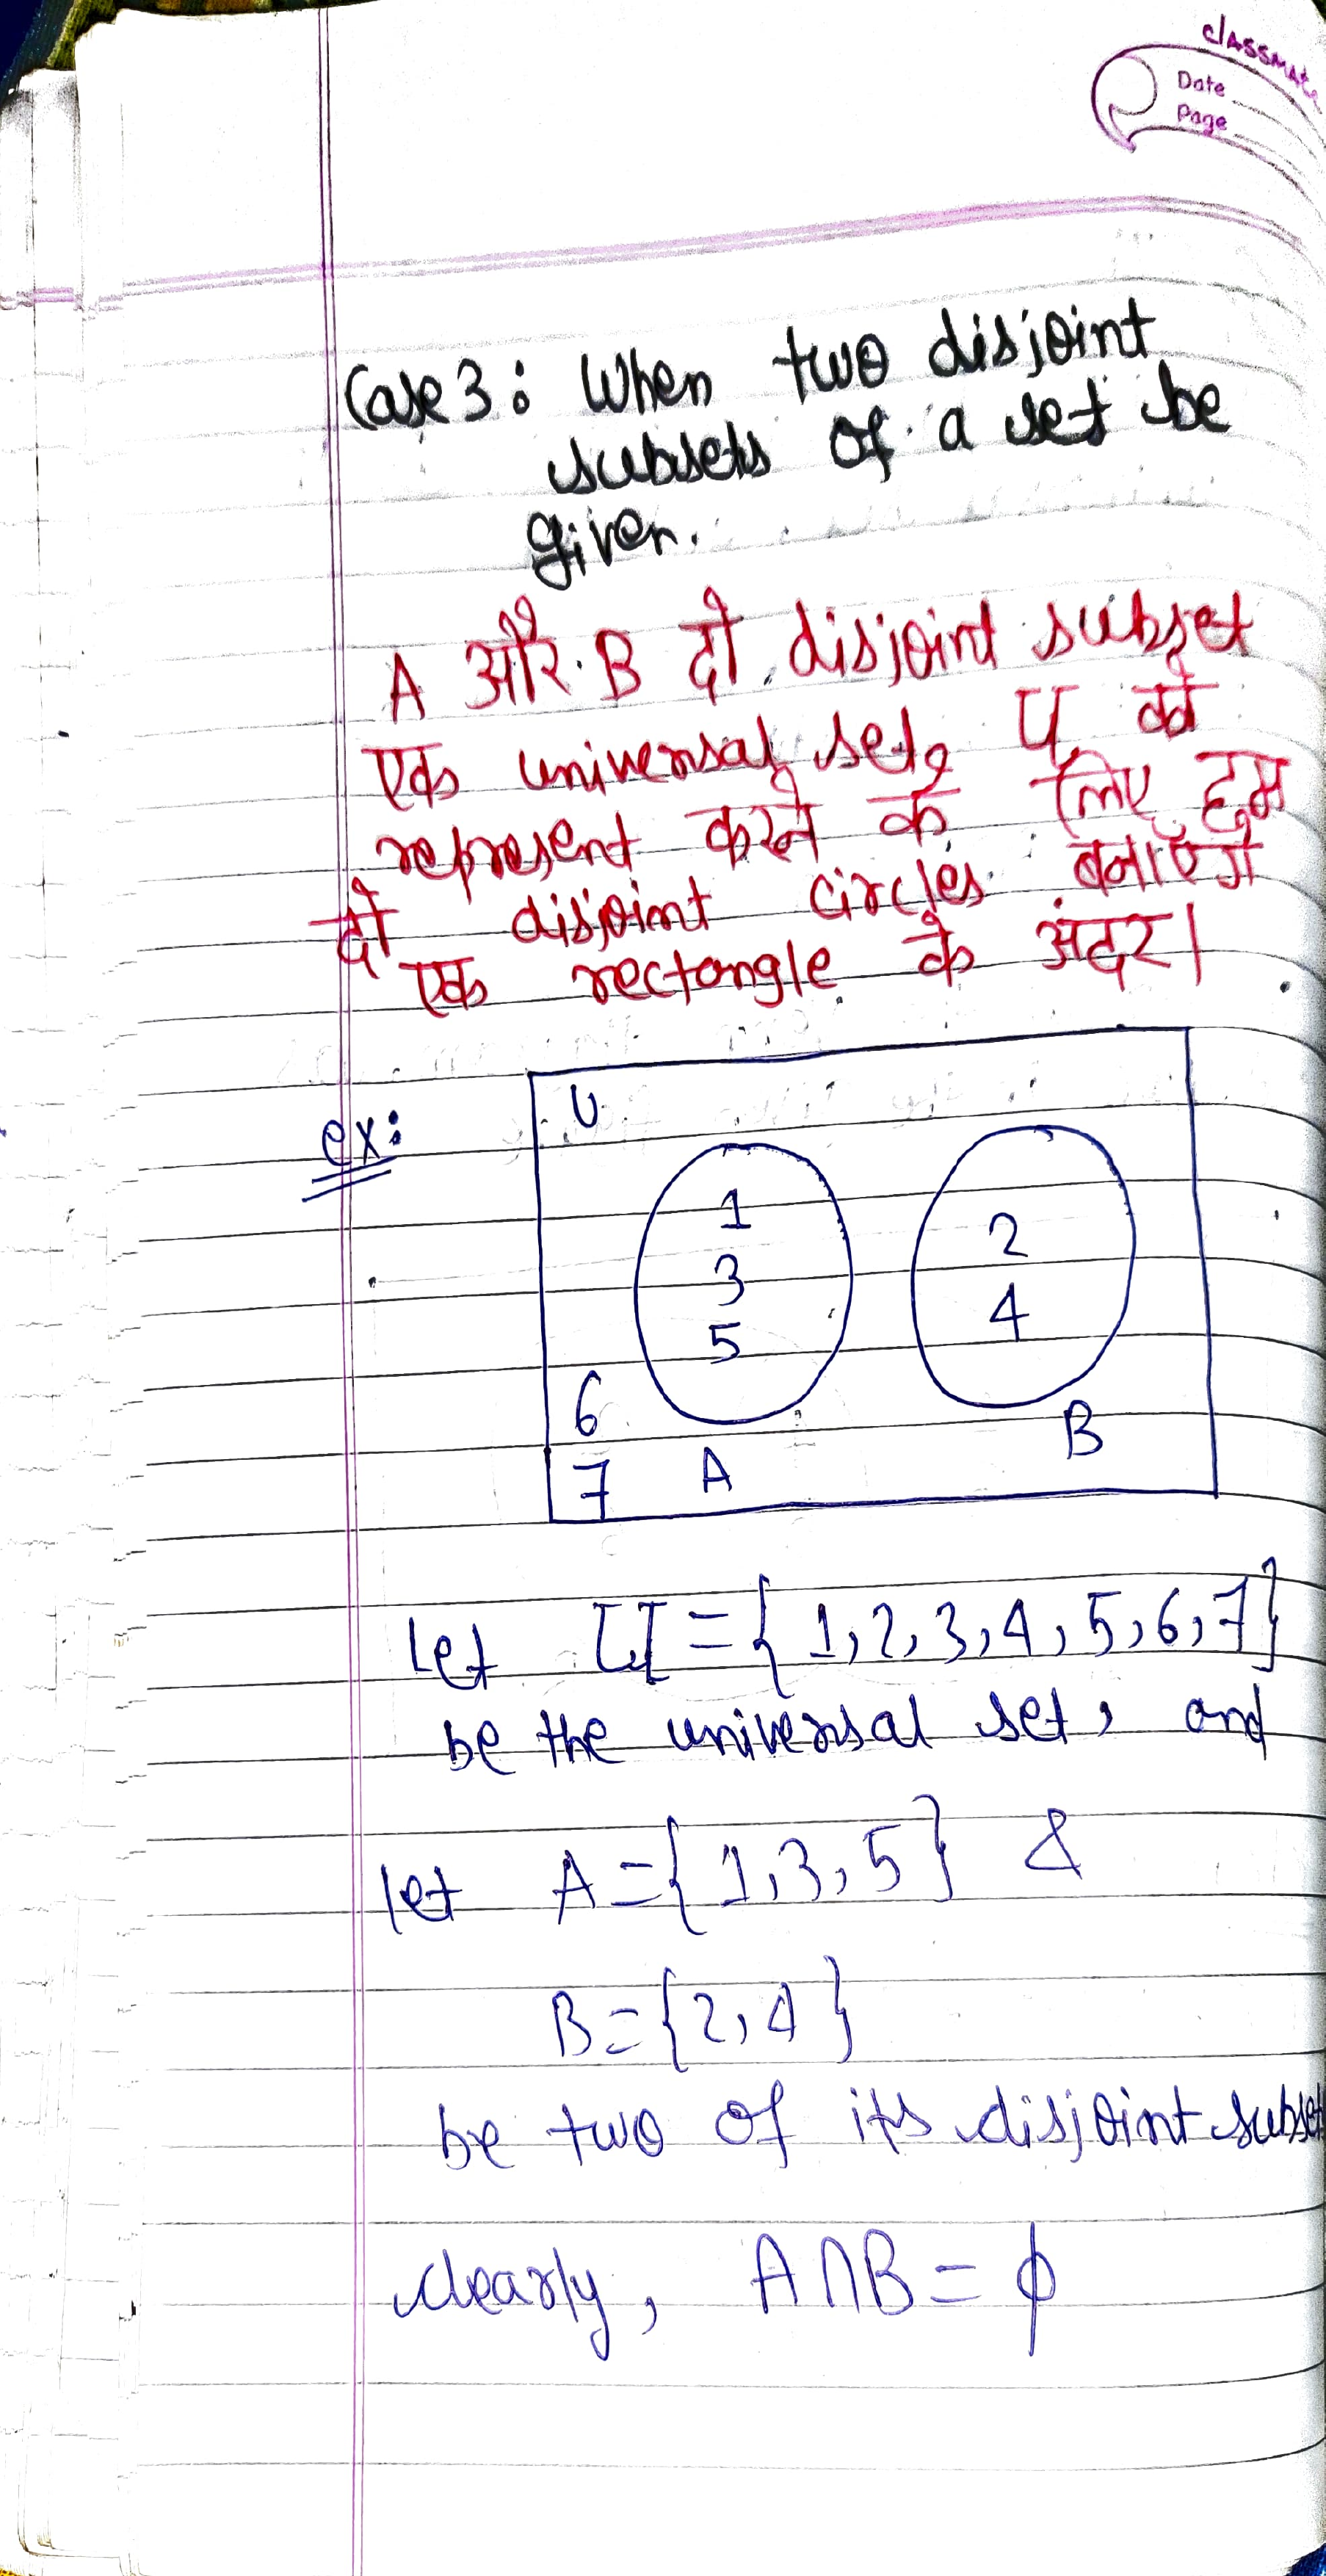 classmate
Date
Page
Case 3: When two disjoint
subsets of a set be
given.
A और B दो disjoint subset
एक universal set, U को
represent करने के लिए हम
दो disjoint circles बनाएंगे
एक rectangle के अंदर।
ex:
U
1
3
5
2
4
6
7
A
B
Let U = {1,2,3,4,5,6,7}
be the universal set, and
let A = {1,3,5} &
B = {2,4}
be two of its disjoint subset
clearly, A∩B = ϕ